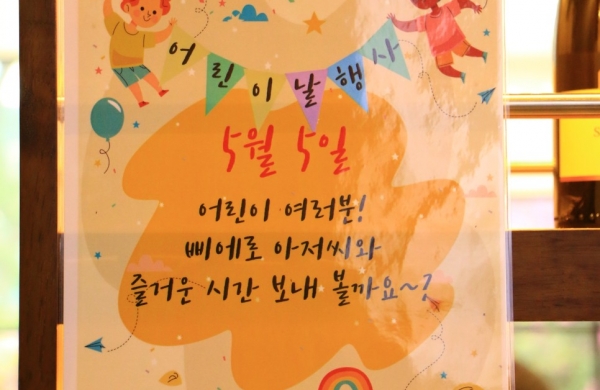 어린이날행사
5월 5일
어린이 여러분!
삐에로 아저씨와
즐거운 시간 보내 볼까요~?